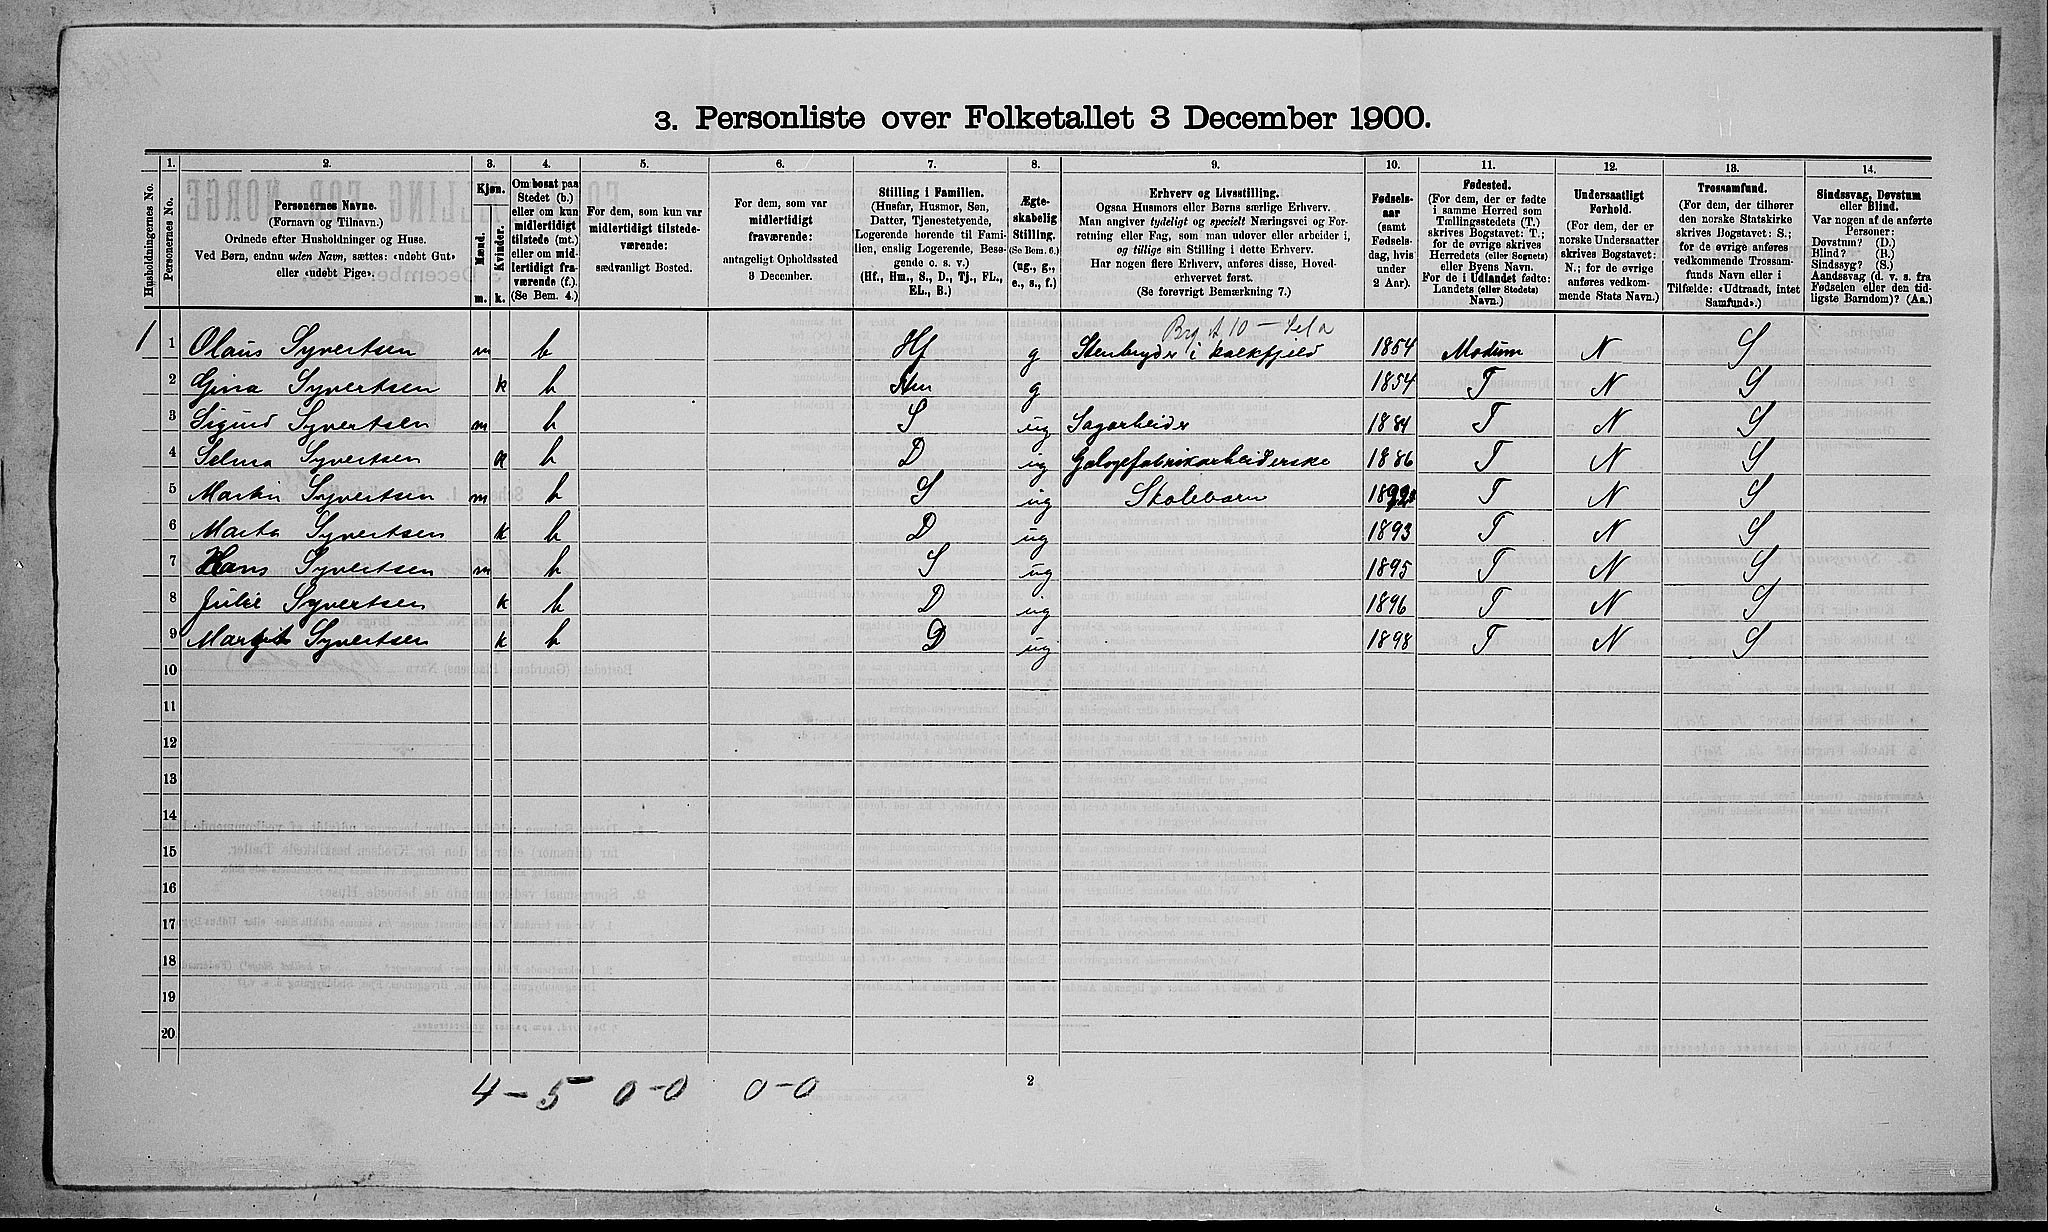 3. Personliste over Folketallet 3 December 1900.
1. 2. 3. 4. 5. 6. 7. 8. 9. 10. 11. 12. 13. 14.
Husholdningernes No.
Personernes No.
Personernes Navne.
(Fornavn og Tilnavn.)
Ordnede efter Husholdninger og Huse.
Ved Børn, endnu uden Navn, sættes: «udøbt Gut»
eller «udøbt Pige».
Kjøn.
Mænd.
Kvinder.
m. k.
Om bosat paa
Stedet (b.)
eller om kun
midlertidigt
tilstede (mt.)
eller om mid-
lertidigt fra-
værende (f.).
(Se Bem. 4.)
For dem, som kun var
midlertidigt tilstede-
værende:
sædvanligt Bosted.
For dem, som var
midlertidigt
fraværende:
antageligt Opholdssted
3 December.
Stilling i Familien.
(Husfar, Husmor, Søn,
Datter, Tjenestetyende,
Logerende hørende til Fami-
lien, enslig Logerende, Besø-
gende o. s. v.)
(Hf., Hm., S., D., Tj., FL.,
EL., B.)
Ægte-
skabelig
Stilling.
(Se Bem. 6.)
(ug., g.,
e., s., f.)
Erhverv og Livsstilling.
Ogsaa Husmors eller Børns særlige Erhverv.
Man angiver tydeligt og specielt Næringsvei og For-
retning eller Fag, som man udover eller arbeider i,
og tillige sin Stilling i dette Erhverv.
Har nogen flere Erhverv, anføres disse, Hoved-
erhvervet først.
(Se forøvrigt Bemærkning 7.)
Fødsels-
aar
(samt
Fødsels-
dag, hvis
under
2 Aar).
Fødested.
(For dem, der er fødte
i samme Herred som
Tællingsstedets (T.)
skrives Bogstavet: T.;
for de øvrige skrives
Herredets (eller Sognets)
eller Byens Navn.
For de i Udlandet fødte:
Landets (eller Stedets)
Navn.)
Undersaatligt
Forhold.
(For dem, der er
norske Undersaatter
skrives Bogstavet:
N.; for de øvrige
anføres vedkom-
mende Stats Navn.)
Trossamfund.
(For dem, der tilhører
den norske Statskirke
skrives Bogstavet: S.;
for de øvrige anføres
vedkommende Trossam-
funds Navn eller i
Tilfælde: «Udtraadt, intet
Samfund».)
Sindssvag, Døvstum
eller Blind.
Var nogen af de anførte
Personer:
Døvstum? (D.)
Blind? (B.)
Sindssyg? (S.)
Aandssvag (d. v. s. fra
Fødselen eller den tid-
ligste Barndom)? (Aa.)
1 1 Olaus Syvertsen m b Hf g Stenbryder i kalkfjeld 1854 Modum N S
2 Gina Syvertsen k b Hm g 1854 T N S
3 Sigurd Syvertsen m b S ug Sagarbeider 1884 T N S
4 Selma Syvertsen k b D ug Galogefabrikarbeiderske 1886 T N S
5 Martin Syvertsen m b S ug Skolebarn T N S
6 Marta Syvertsen k b D ug 1893 T N S
7 Hans Syvertsen m b S ug 1895 T N S
8 Julie Syvertsen k b D ug 1896 T N S
9 Margit Syvertsen k b D ug 1898 T N S
10
11
12
13
14
15
16
17
18
19
20
4 - 5 0-0 0-0
2